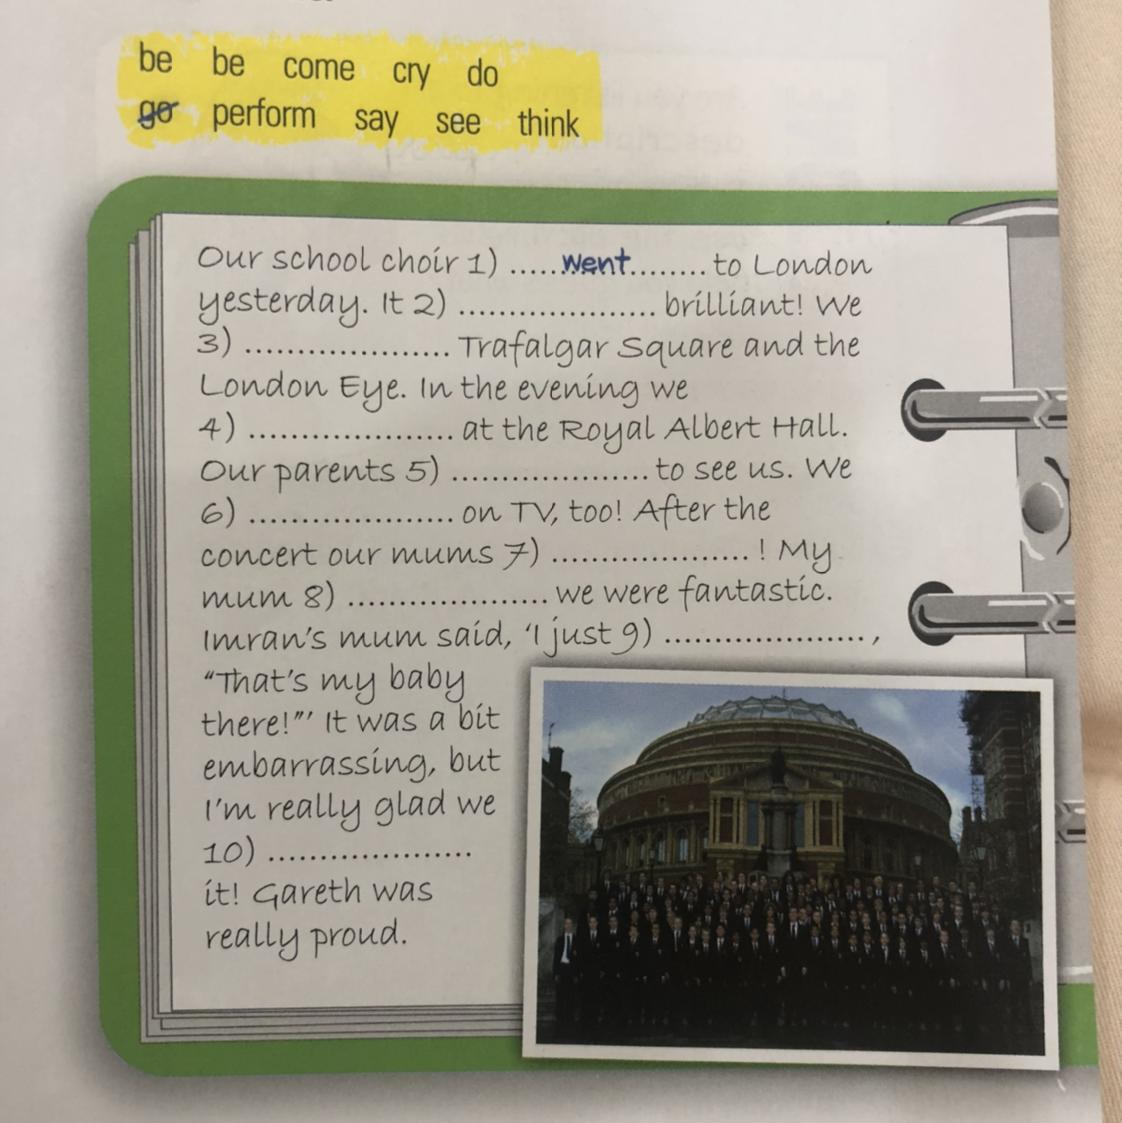 be be come cry do
go perform say see think
Our school choir 1) .....went........ to London
yesterday. It 2) .................... brilliant! We
3) .................... Trafalgar Square and the
London Eye. In the evening we
4) .................... at the Royal Albert Hall.
Our parents 5) ................... to see us. We
6) .................... on TV, too! After the
concert our mums 7) ................... ! My
mum 8) ................... we were fantastic.
Imran's mum said, 'I just 9) ................... ,
"That's my baby
there!"' It was a bit
embarrassing, but
I'm really glad we
10) ....................
it! Gareth was
really proud.